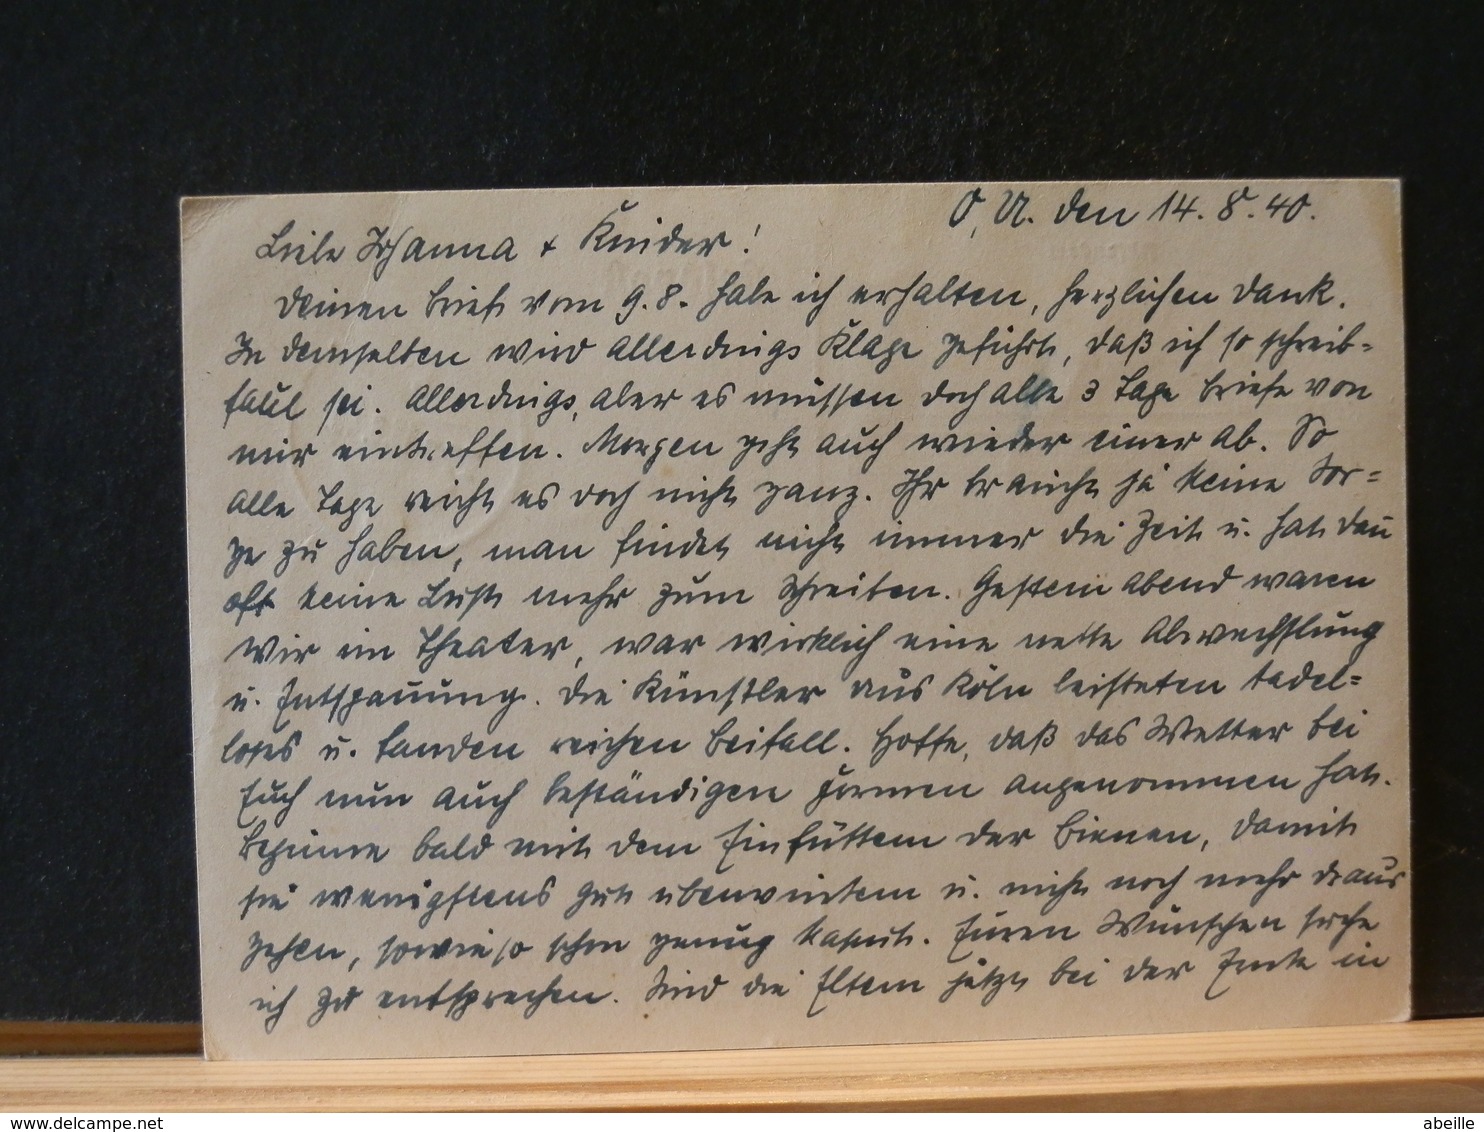 O. U. den 14. 8. 40.
Liebe Johanna + Kinder!
Deinen Brief vom 9. 8. habe ich erhalten, herzlichen Dank.
In demselben wird allerdings Klage geführt, daß ich so schreib=
faul sei. Allerdings, aber es müssen doch alle 3 Tage Briefe von
mir eintreffen. Morgen geht auch wieder einer ab. So
alle Tage reicht es doch nicht ganz. Ihr braucht ja keine Sor=
ge zu haben, man findet nicht immer die Zeit u. hat dan
oft keine Lust mehr zum Schreiben. Gestern Abend waren
wir im Theater, war wirklich eine nette Abwechslung
u. Entspannung. Die Künstler aus Köln leisteten tadel=
loses u. fanden reichen Beifall. Hoffe, daß das Wetter bei
Euch nun auch beständigen Formen angenommen hat.
Beginne bald mit dem Einfüttern der Bienen, damit
sie wenigstens gut überwintern u. nicht noch mehr draus
gehen, sowieso schon genug kaput. Euren Wünschen suche
ich zu entsprechen. Sind die Eltern jetzt bei der Ernte in
delcampe.net
abeille